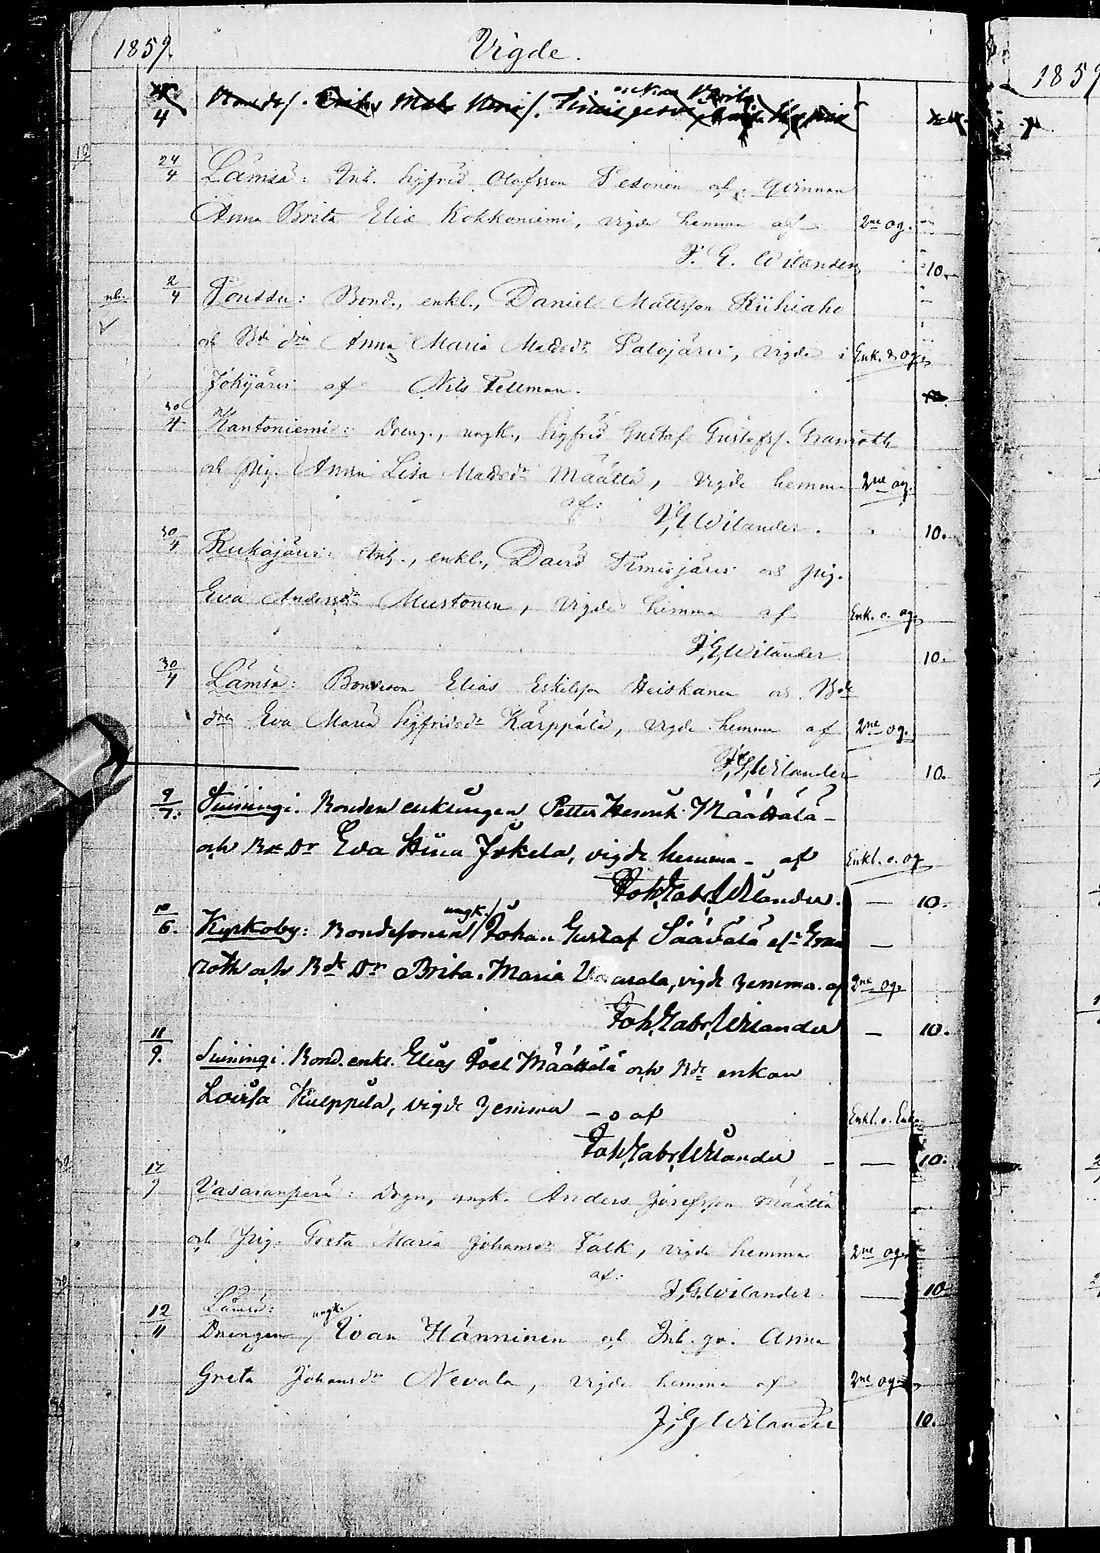 1859. Vigde.
4
24/4 Lämsä: Inh. Sigfrid Olofsson Tesonen och qvinnan
Anna Brita Elia Kokkoniemi, vigde hemma af 2ne og.
J. G. Wilander 10.
nb. 2/4 Bond., enkl., Daniel Mattsson
och Bde dtr Anna Maria Matsdr Palojärvi, vigde i Enk. & og.
af Nils Fellman.
30/4 Kantoniemi: Dreng., ungk., Sigfrid Gustaf Gustafss. Granroth
och pig. Anna Lisa Matsdr Määttä, vigde hemma 2ne og.
af: J G Wilander. 10.
30/4 Kukajärvi: Inh., enkl., David och pig.
Eva Andersdr Mustonen, vigde hemma af Enk. o. og.
J. G. Wilander 10.
30/4 Lämsä: Bondeson Elias Eskelsson Heiskanen och Bde
dtr Eva Maria Sigfridsdr Karppala, vigde hemma af 2ne og.
J. G. Wilander 10.
9/7. Suiningi. Bonden enklingen Petter Henrik Määttälä
och Bde Dr Eva Stina Jokela, vigde hemma - af Enkl. o. og
Joh. Gabr. Wilander. — 10.
10/6. Kyrkoby: Bondesonen ungk. Johan Gustaf Säävälä el. Gran
roth och Bde Dr Brita Maria, vigde hemma af 2ne og.
Joh. Gabr. Wilander — 10.
11/9. Suiningi. Bond. enkl. Elias Joel Määttälä och Bde enkan
Lovisa Kulppila, vigde hemma - o af Enkl. o. Enka
Joh. Gabr. Wilander — 10.
17/9 Vasaranperä: Drgn, ungk. Anders Josefsson Määttä
och Pig. Greta Maria Johansdr Falk, vigde hemma 2ne og.
af: J. G. Wilander. 10
12/11 Lämsä:
Drengen ungk. Ivan Hänninen och Inh. qv. Anna
Greta Johansdr Nevala, vigde hemma af 2ne og.
J. G. Wilander 10.
1859